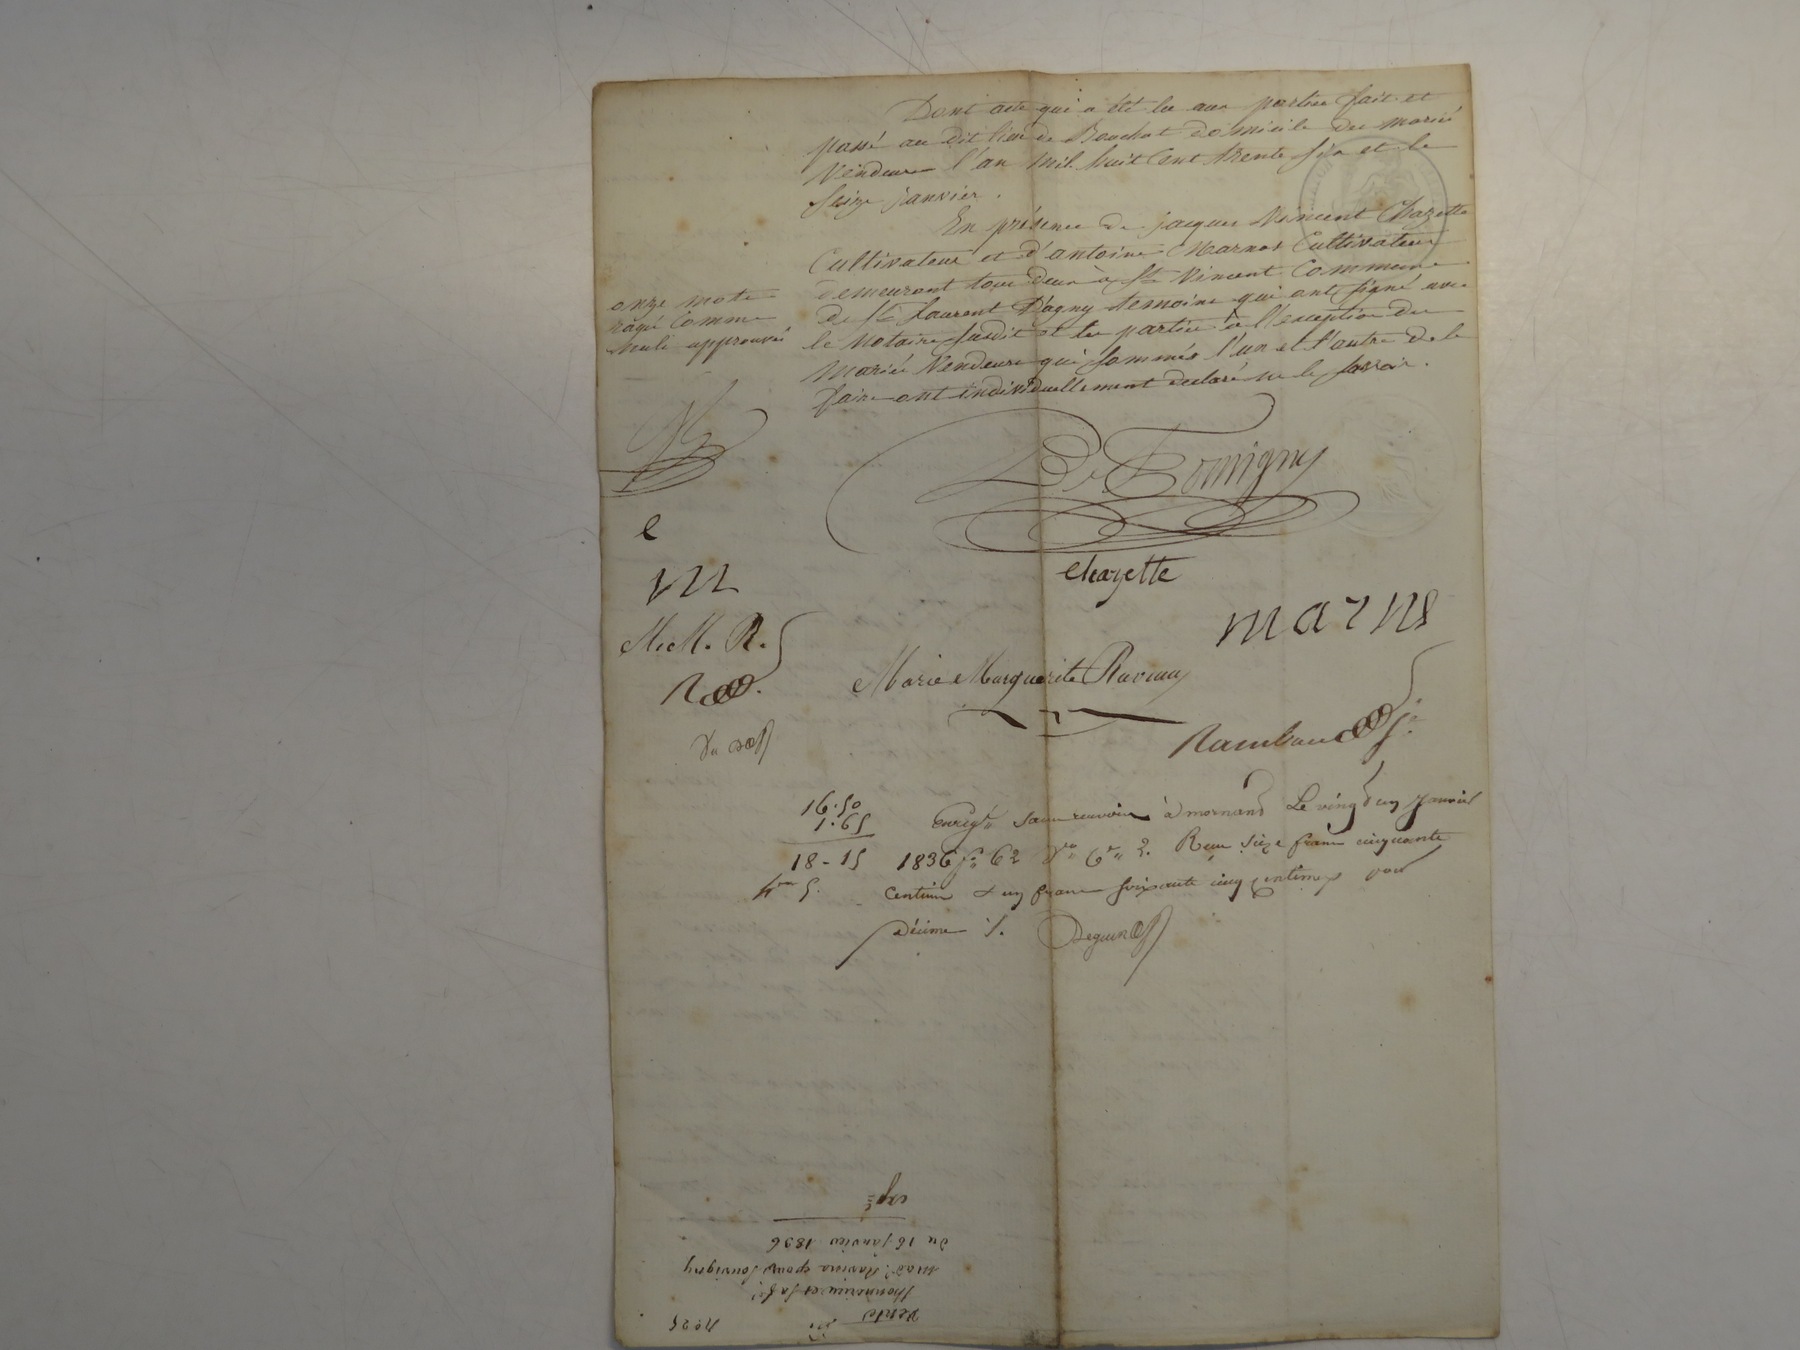 Dont acte qui a été lu aux parties fait et
passé au dit lieu de Bouchat domicile des mariés
Vendeurs l'an mil huit Cent trente six et le
seize janvier.
En présence de jacques Vincent Chazette
Cultivateur et d'antoine Marnas Cultivateur
demeurant tous deux à St Vincent Commune
de St Laurent D'agny temoins qui ont signé avec
le Notaire susdit et les parties à l'exception des
mariés Vendeurs qui sommés l'un et l'autre de le
faire ont individuellement declaré ne le savoir.
onze mots
rayé Comme
nuls approuvés
De Souvigny
C
Chazette
m
marns
M. M. R.
Marie Marguerite Raviau
R
Rambaud
16.50
1.65
18-15
Enregté sans renvois à mornand Le vingt un Janvier
1836 fo 62 Vo Ces 2. Reçu seize francs cinquante
centimes & un franc soixante cinq centimes pour
décime
No 25
Vente
Mad. Raviera épouse Souvigny
du 16 janvier 1836
expé